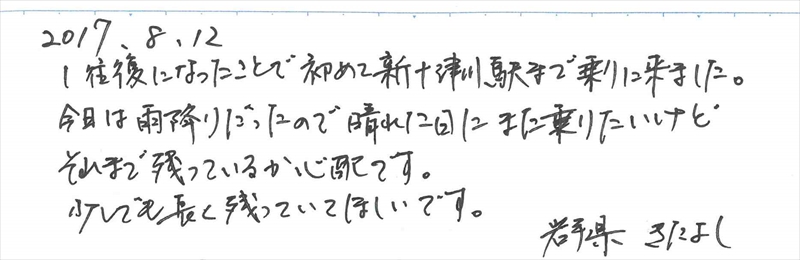 2017.8.12
1往復になったことで初めて新十津川駅まで乗りに来ました。
今日は雨降りだったので晴れた日にまた乗りたいけど
それまで残っているか心配です。
少しでも長く残っていてほしいです。
岩手県 きたよし